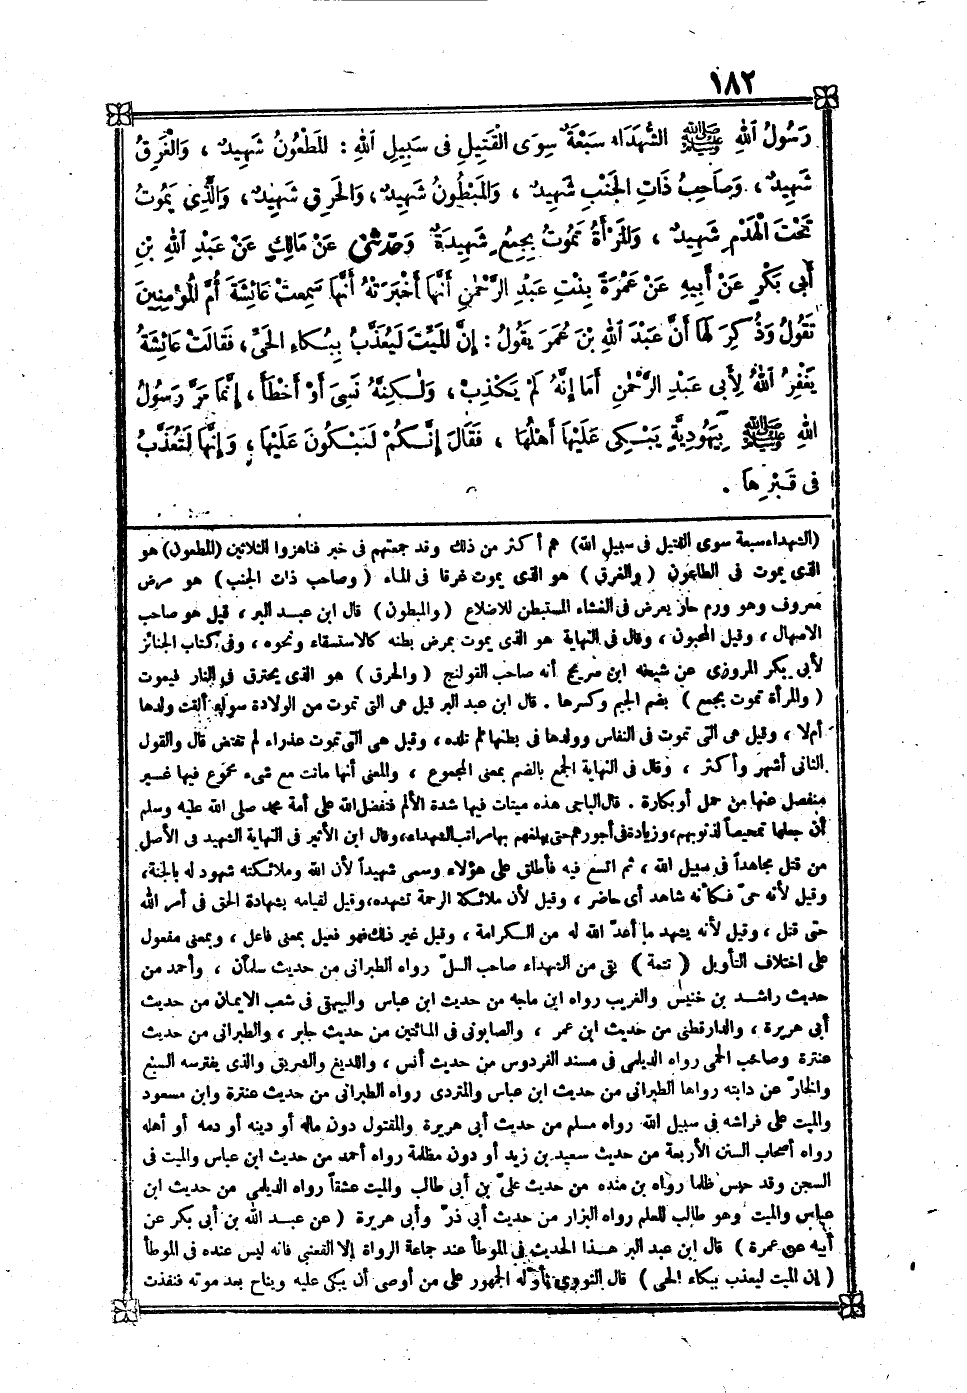 ١٨٢
رَسُولُ اللهِ ﷺ الشُّهَدَاءُ سَبْعَةٌ سِوَى الْقَتِيلِ فى سَبِيلِ اللهِ : الْمَطْعُونُ شَهِيدٌ ، وَالْغَرِقُ
شَهِيدٌ ، وَصَاحِبُ ذَاتِ الْجَنْبِ شَهِيدٌ ، وَالْمَبْطُونُ شَهِيدٌ ، وَالحَرِقِ شَهِيدٌ ، وَالَّذِى يَمُوتُ
تَحْتَ الْهَدْمِ شَهِيدٌ ، وَالْمَرْأَةُ تَمُوتُ بِجُمْعٍ شَهِيدَةٌ وَحَدَّثَنِى عَنْ مَالِكٍ عَنْ عَبْدِ اللهِ بْنِ
أَبِى بَكْرٍ عَنْ أَبِيهِ عَنْ عَمْرَةَ بِنْتِ عَبْدِ الرَّحْمٰنِ أَنَّهَا أَخْبَرَتْهُ أَنَّهَا سَمِعَتْ عَائِشَةَ أُمَّ الْمُؤْمِنِينَ
تَقُولُ وَذُكِرَ لَهَا أَنَّ عَبْدَ اللهِ بْنَ عُمَرَ يَقُولُ : إِنَّ الْمَيِّتَ لَيُعَذَّبُ بِبُكَاءِ الْحَىِّ ، فَقَالَتْ عَائِشَةُ
يَغْفِرُ اللهُ لِأَبِى عَبْدِ الرَّحْمٰنِ أَمَا إِنَّهُ لَمْ يَكْذِبْ ، وَلٰـكِنَّهُ نَسِىَ أَوْ أَخْطَأَ ، إِنَّمَا مَرَّ رَسُولُ
اللهِ ﷺ بِيَهُودِيَّةٍ يَبْكِى عَلَيْهَا أَهْلُهَا ، فَقَالَ إِنَّكُمْ لَتَبْكُونَ عَلَيْهَا ، وَإِنَّهَا لَتُعَذَّبُ
فى قَبْرِهَا .
(الشهداء سبعة سوى القتيل فى سبيل الله) هم أكثر من ذلك وقد جمعتهم فى خبر فناهزوا الثلاثين (المطعون) هو
الذى يموت فى الطاعون (والغرق) هو الذى يموت غرقا فى الماء (وصاحب ذات الجنب) هو مرض
معروف وهو ورم حار يعرض فى الغشاء المستبطن للاضلاع (والمبطون) قال ابن عبد البر ، قيل هو صاحب
الاسهال ، وقيل المحبون ، وقال فى النهاية هو الذى يموت بمرض بطنه كالاستسقاء ونحوه ، وفى كتاب الجنائز
لأبى بكر المروزى عن شيخه ابن سريج أنه صاحب القولنج (والحرق) هو الذى يحترق فى النار فيموت
(والمرأة تموت بجمع) بضم الجيم وكسرها . قال ابن عبد البر قيل هى التى تموت من الولادة سواء ألقت ولدها
أم لا ، وقيل هى التى تموت فى النفاس وولدها فى بطنها لم تلده ، وقيل هى التى تموت عذراء لم تفتض قال والقول
الثانى أشهر وأكثر ، وقال فى النهاية الجمع بالضم بمعنى المجموع ، والمعنى أنها ماتت مع شىء مجموع فيها غير
منفصل عنها من حمل أو بكارة . قال الباجى هذه ميتات فيها شدة الألم فتفضل الله على أمة محمد صلى الله عليه وسلم
أن جعلها تمحيصاً لذنوبهم ، وزيادة فى أجورهم حتى يبلغهم بها مراتب الشهداء ، وقال ابن الأثير فى النهاية الشهيد فى الأصل
من قتل مجاهداً فى سبيل الله ، ثم اتسع فيه فأطلق على هؤلاء وسمى شهيداً لأن الله وملائكته شهود له بالجنة ،
وقيل لأنه حىّ فكأنه شاهد أى حاضر ، وقيل لأن ملائكة الرحمة تشهده ، وقيل لقيامه بشهادة الحق فى أمر الله
حتى قتل ، وقيل لأنه يشهد ما أعدّ الله له من الكرامة ، وقيل غير ذلك فهو فعيل بمعنى فاعل ، وبمعنى مفعول
على اختلاف التأويل (تتمة) بقى من الشهداء صاحب السلّ رواه الطبرانى من حديث سلمان ، وأحمد من
حديث راشد بن خنيس والغريب رواه ابن ماجه من حديث ابن عباس والبيهقى فى شعب الايمان من حديث
أبى هريرة ، والدارقطنى من حديث ابن عمر ، والصابونى فى المائتين من حديث جابر ، والطبرانى من حديث
عنترة وصاحب الحمى رواه الديلمى فى مسند الفردوس من حديث أنس ، واللديغ والشريق والذى يفترسه السبع
والخارّ عن دابته رواها الطبرانى من حديث ابن عباس والمتردى رواه الطبرانى من حديث عنترة وابن مسعود
والميت على فراشه فى سبيل الله رواه مسلم من حديث أبى هريرة والمقتول دون ماله أو دينه أو دمه أو أهله
رواه أصحاب السنن الأربعة من حديث سعيد بن زيد أو دون مظلمة رواه أحمد من حديث ابن عباس والميت فى
السجن وقد حبس ظلما رواه بن منده من حديث علىّ بن أبى طالب والميت عشقاً رواه الديلمى من حديث ابن
عباس والميت وهو طالب للعلم رواه البزار من حديث أبى ذرّ وأبى هريرة (عن عبد الله بن أبى بكر عن
أبيه عن عمرة) قال ابن عبد البر هذا الحديث فى الموطأ عند جماعة الرواة إلا القعنبى فانه ليس عنده فى الموطأ
(إن الميت ليعذب ببكاء الحى) قال النووى تأوّله الجمهور على من أوصى أن يبكى عليه ويناح بعد موته فنفذت